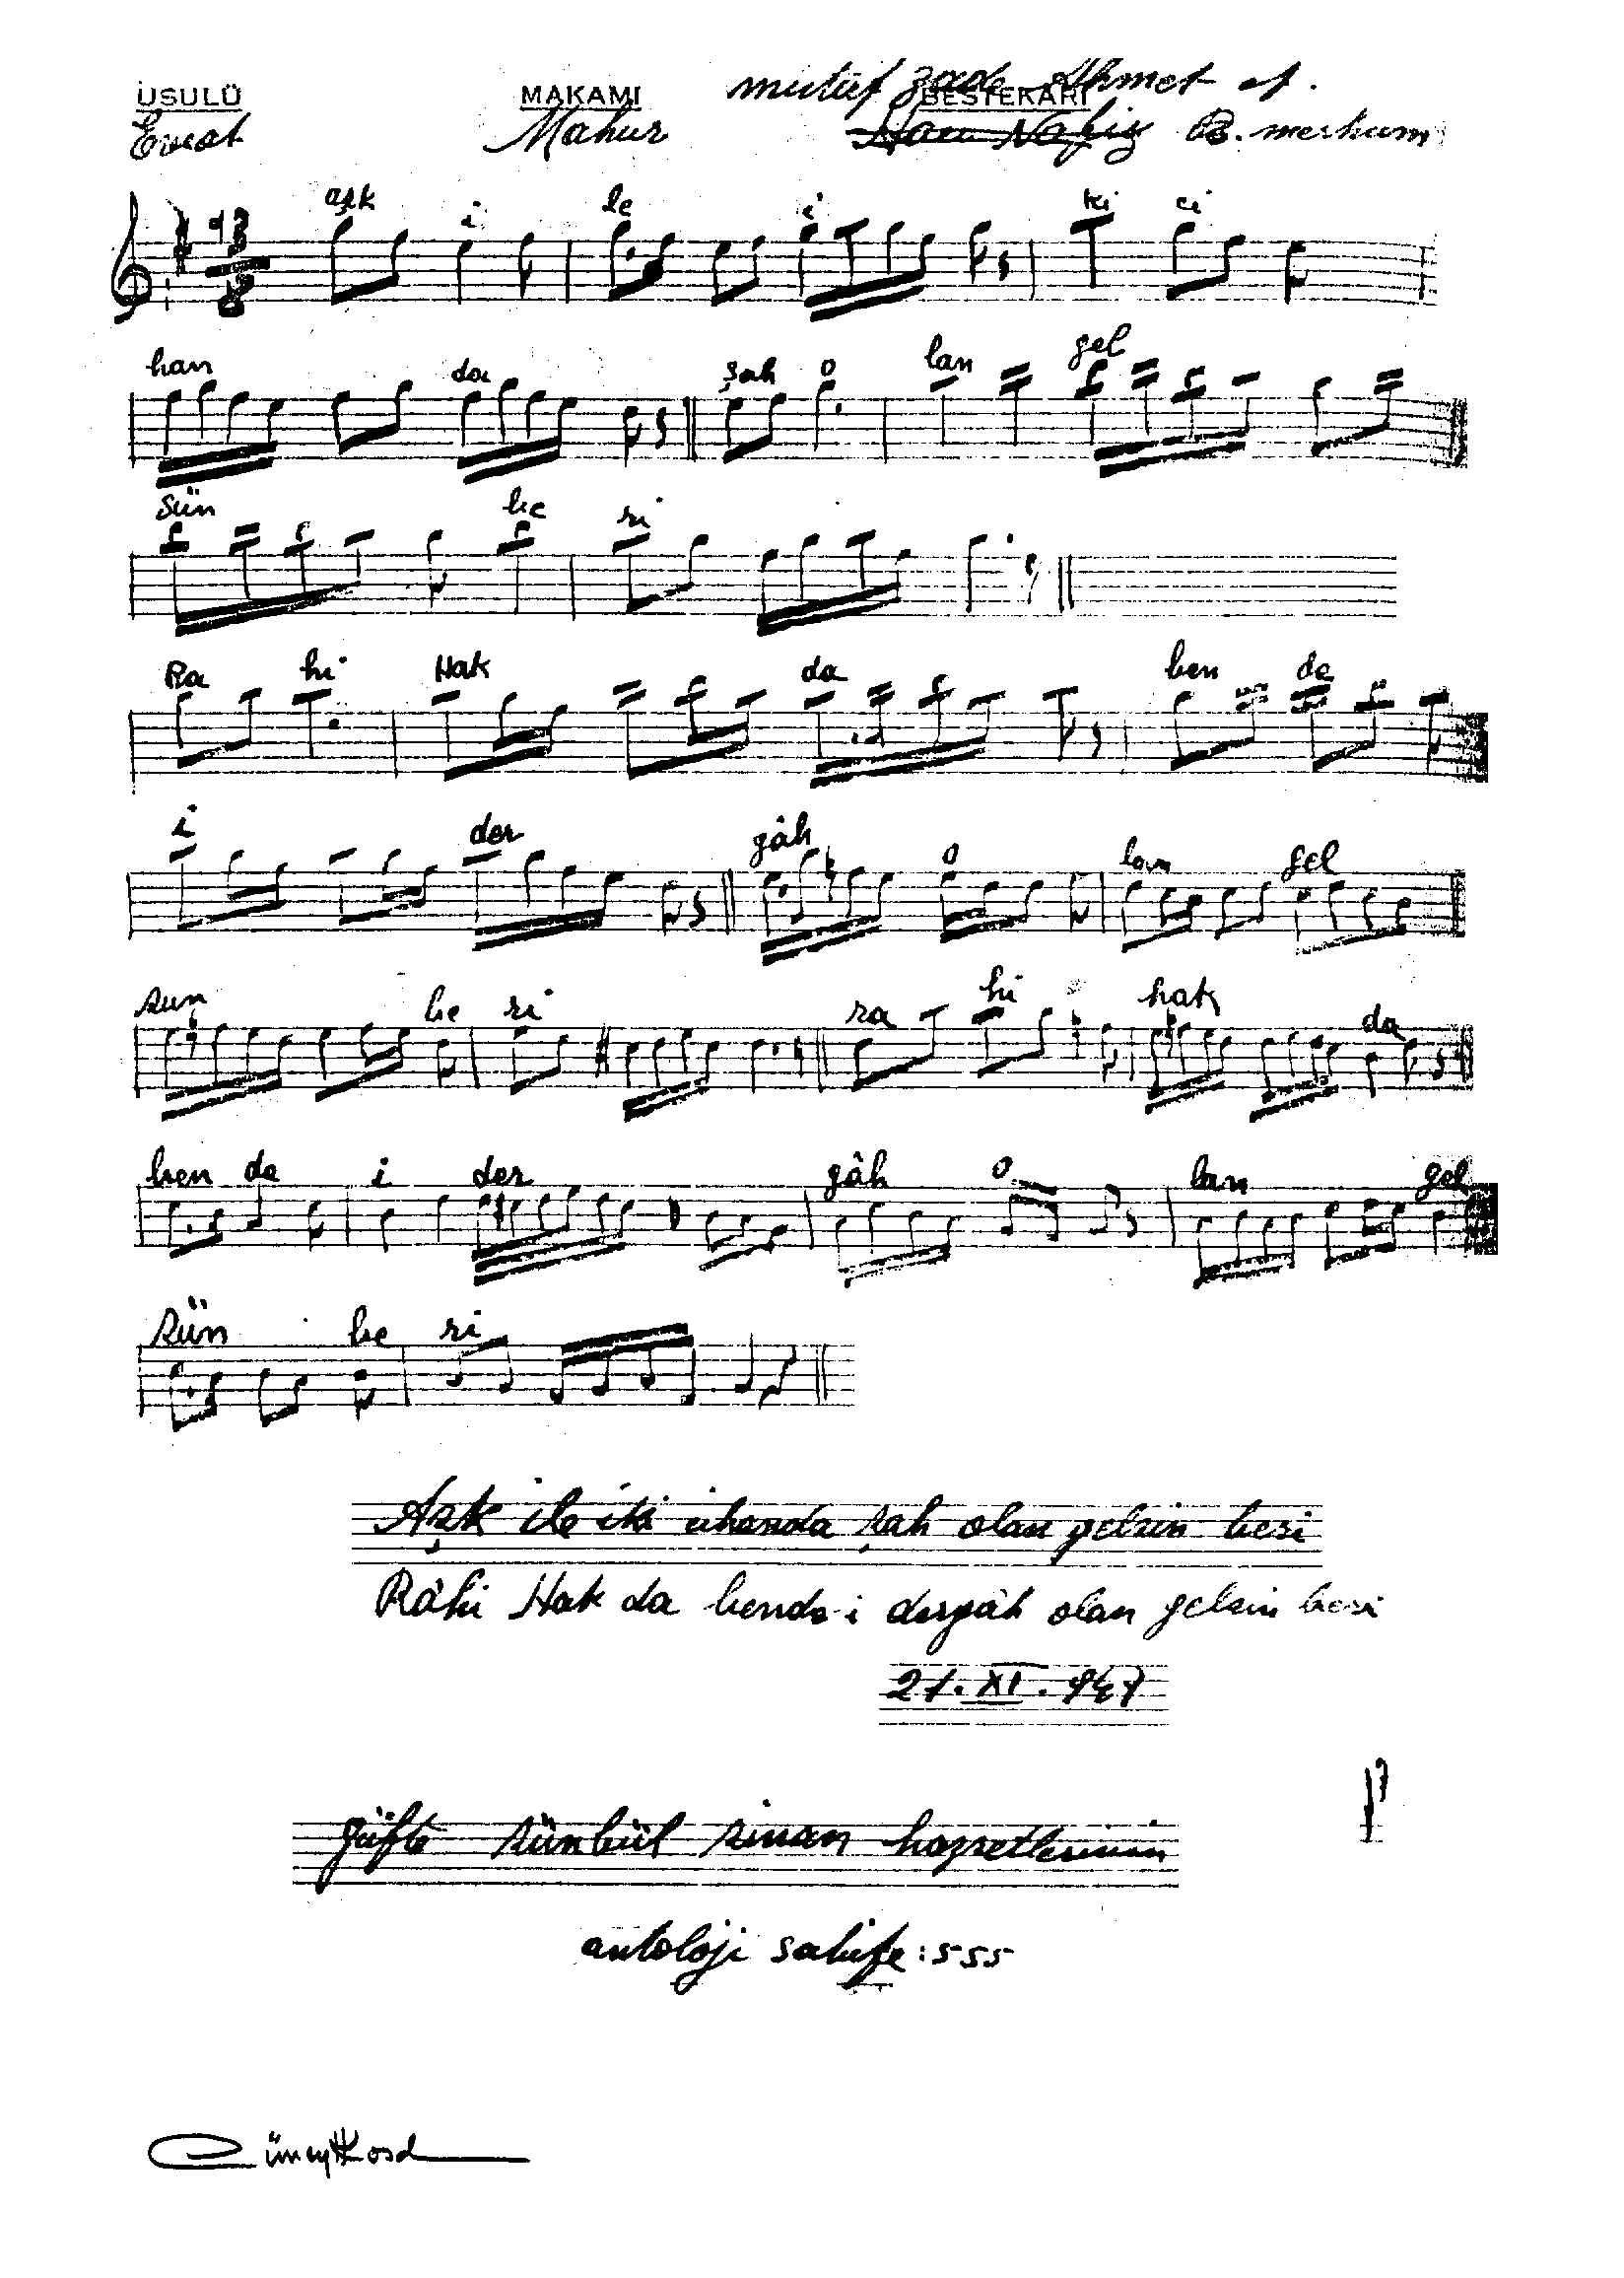 USULÜ MAKAMI BESTEKARI
Evsat Mahur mutuf zade Ahmet ef.
B. merhum
13
8
aşk i le i ki ci
han da şah o lan gel
sün be ri
Ra hi Hak da ben de
i der gâh o lan gel
sun be ri ra hi hak da
ben de i der gâh o lan gel
sün be ri
Aşk ile iki cihanda şah olan gelsin beri
Râhi Hak da bende-i dergâh olan gelsin beri
21. XI. 947
güfte sünbül sinan hazretlerinin
antoloji sahife: 555